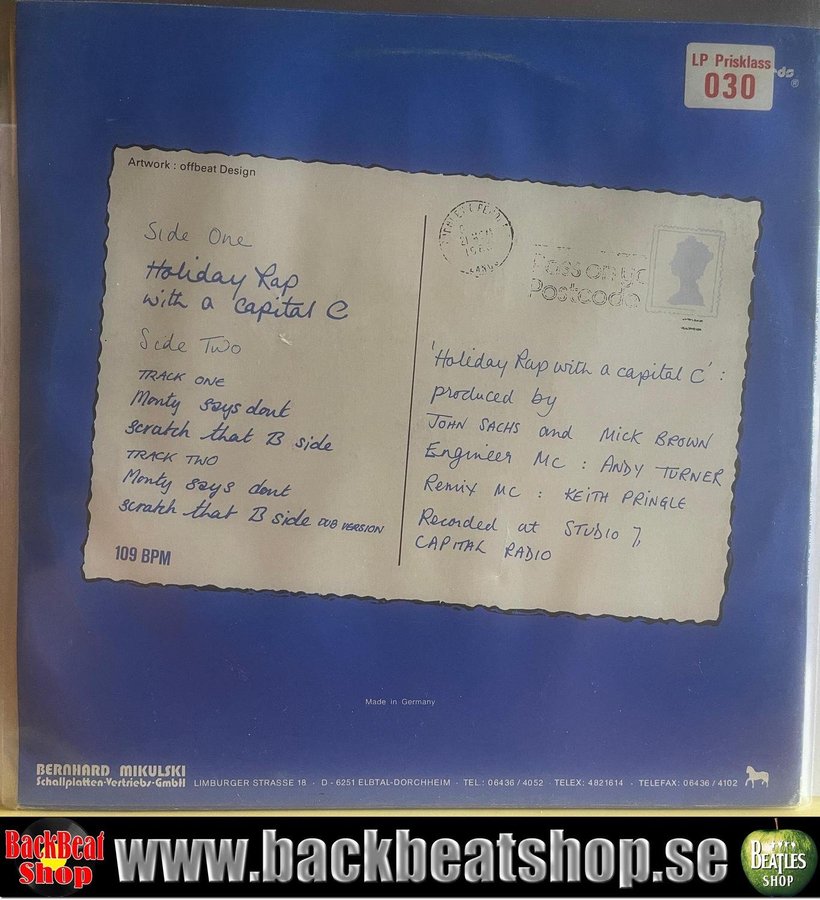 LP Prisklass
030
ds
®
Artwork : offbeat Design
Side One
Holiday Rap
with a capital C
Side Two
TRACK ONE
Monty says dont
scratch that B side
TRACK TWO
Monty says dont
scratch that B side DUB VERSION
109 BPM
Pass on yo
Postcode
'Holiday Rap with a capital C' :
produced by
JOHN SACHS and MICK BROWN
Engineer MC : ANDY TURNER
Remix MC : KEITH PRINGLE
Recorded at STUDIO 7,
CAPITAL RADIO
Made in Germany
BERNHARD MIKULSKI
Schallplatten-Vertriebs-GmbH LIMBURGER STRASSE 18 · D - 6251 ELBTAL-DORCHHEIM · TEL : 06436 / 4052 · TELEX: 4821614 · TELEFAX: 06436 / 4102
BackBeat
Shop
www.backbeatshop.se
BEATLES
SHOP